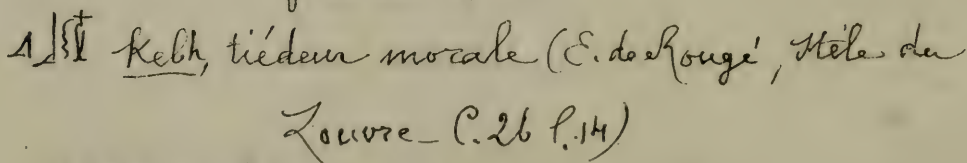 Kebh, tiédeur morale (E. de Rougé, Stèle du
Louvre _ C. 26 l. 14)